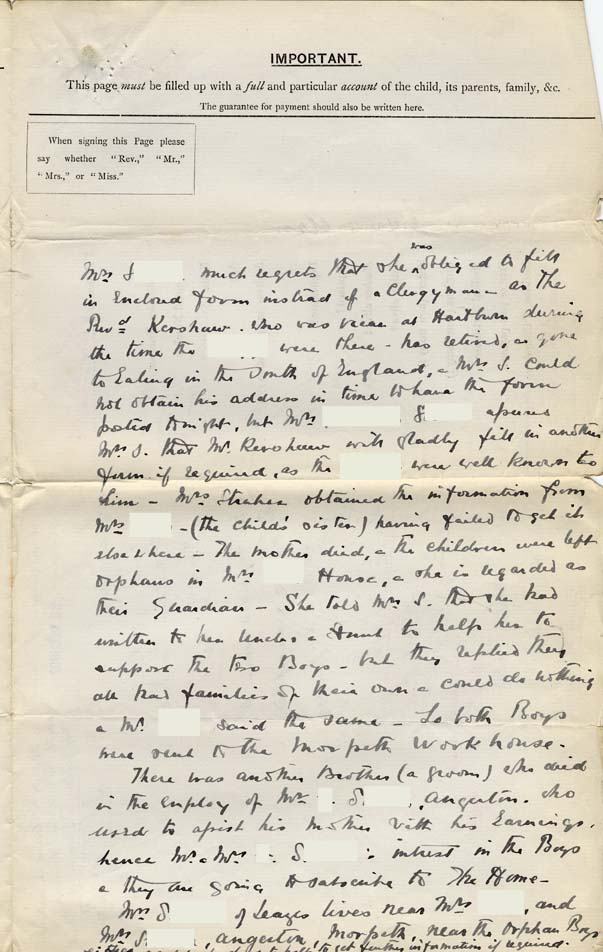 IMPORTANT.
This page must be filled up with a full and particular account of the child, its parents, family, &c.
The guarantee for payment should also be written here.
When signing this Page please
say whether "Rev.," "Mr.,"
"Mrs.," or "Miss."
Mrs S much regrets that she was obliged to fill
in Enclosed form instead of a Clergyman as the
Revd Kershaw. who was vicar at Hartburn during
the time the were there - has retired, & gone
to Ealing in the South of England, & Mrs S. could
not obtain his address in time to have the form
posted tonight, but Mrs. S assures
Mrs S. that Mr. Kershaw will gladly fill in another
form if required, as the were well known to
him - Mrs obtained the information from
Mrs - (the child's sister) having failed to get it
elsewhere - The mother died, & the children were left
orphans in Mrs House, & she is regarded as
their Guardian - She told Mrs S. that she had
written to her Uncles & Aunt to help her to
support the two Boys - but they replied they
all had families of their own & could do nothing
& Mr. said the same - So both Boys
were sent to the Morpeth Workhouse.
There was another Brother (a groom) who died
in the employ of Mr. S , Angerton. who
used to assist his mother with his Earnings.
hence Mr. & Mrs S. interest in the Boys
& they are going to subscribe to The Home -
Mrs S of lives near Mrs , and
Mrs S. , Angerton, Morpeth, near the Orphan Boys
to get further information if required.